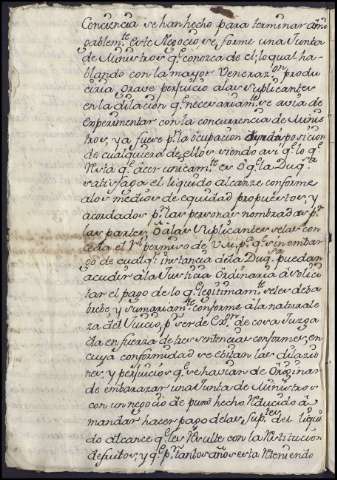 Conciencia se han hecho para terminar ami
gablem.te este Negocio se forme una Junta
de Ministros q.e conozca de el; lo qual ha
blando con la mayor Veneraz.on produ
ciria grave perjuicio a las suplicantes
en la dilacion q.e necesariam.te se avia de
experimentar con la concurrencia de Minis
tros, ya fuese p.r la ocupacion ò yndisposicion
de cualquiera de ellos siendo asi q.e lo q.e
resta q.e acer unicam.te es q.e la Duq.sa
satisfaga el liquido alcanze conforme
a los medios de equidad propuestos, y
acordados p.r las personas nombradas p.r
las partes, ò a las suplicantes se las con
ceda el R.l permiso de V.M. p.a q.e sin embar
go de cualq.r instancia de la Duq.sa puedan
acudir a la Justicia Ordinaria à solici
tar el pago de lo q.e legitimam.te se les deba
breve, y sumariam.te conforme à la naturale
za del Juicio, p.r ser de Cosa Juzga
da en fuerza de tres sentencias conformes, en
cuya conformidad se evitan las dilacio
nes, y perjuicios q.e se havian de Originar
de embarazar una Junta de Ministros
con un negocio de puro hecho reducido à
mandar hacer pago de las Sup.tes del liqui
do alcanze q.e les resulte con la restitucion
de fructos, y q.e p.r tantos años estan teniendo